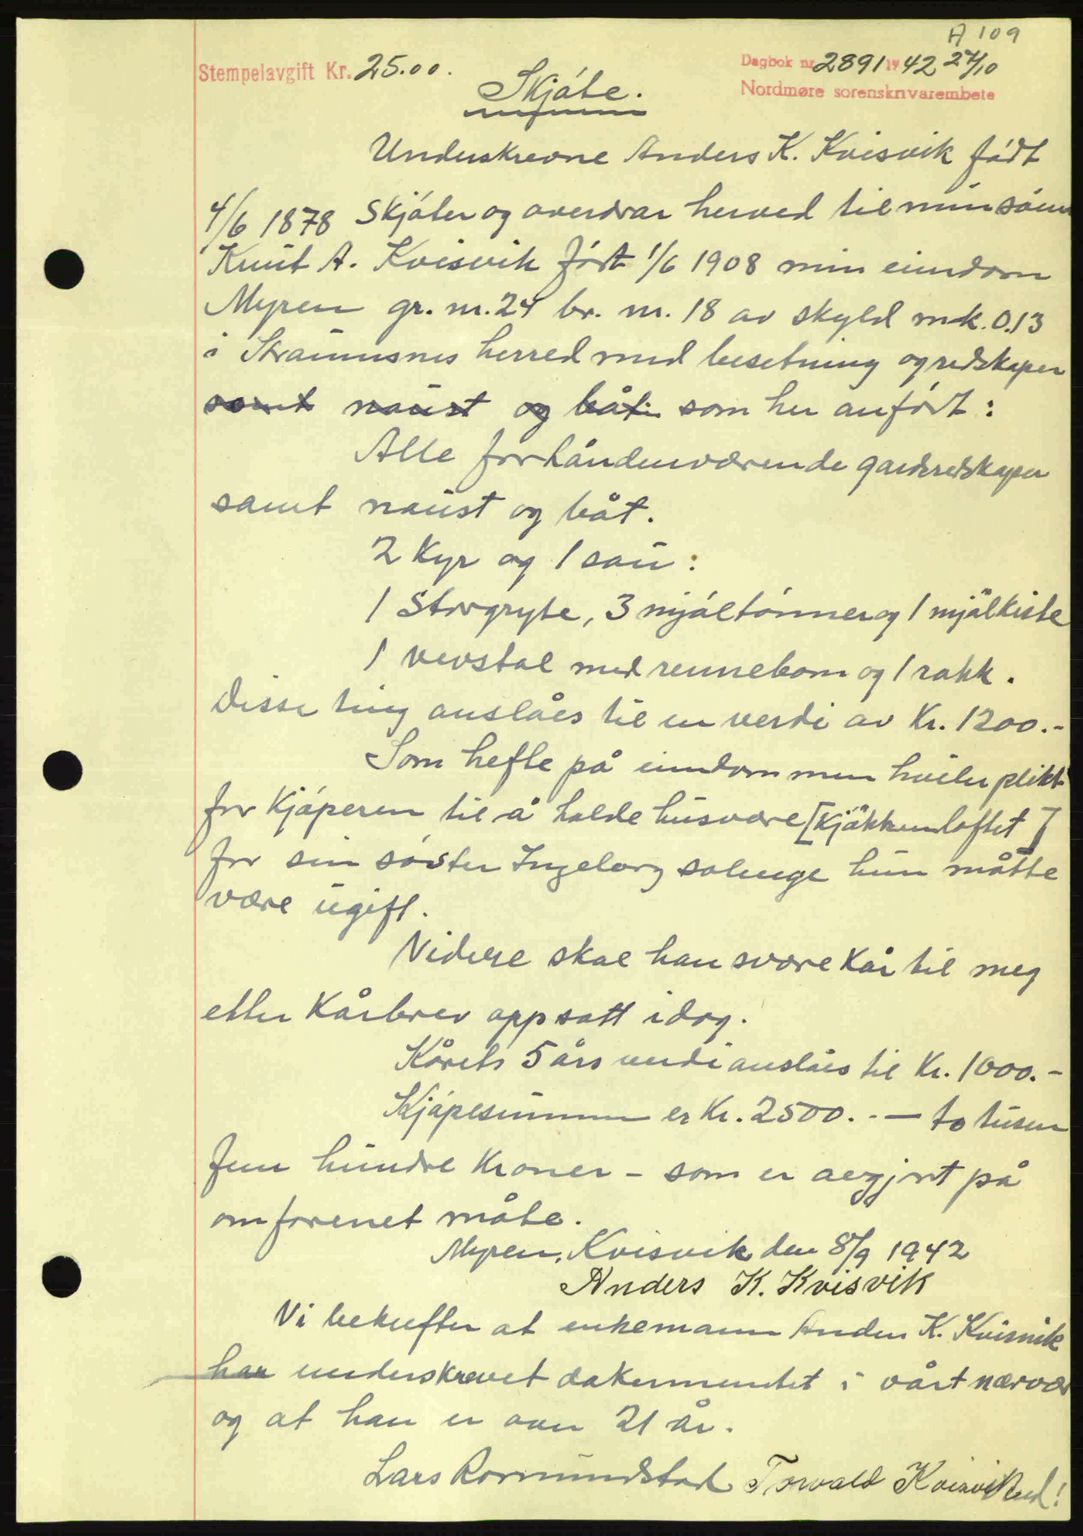 A 109
Stempelavgift Kr. 25.00.
Dagbok nr 2891 19 42 27/10
Nordmøre sorenskrivarembete
Skjøte.
Underskrevne Anders K. Kvisvik født
4/6 1878 Skjøter og overdrar herved til min sønn
Knut A. Kvisvik født 1/6 1908 min eiendom
Myren gr. nr. 24 br. nr. 18 av skyld mk. 0.13
i Straumsnes herred med besetning og redskaper
samt naust og båt som her anført:
Alle forhåndenværende gardsredskaper
samt naust og båt.
2 Kyr og 1 sau:
1 Storgryte, 3 mjøltønner og 1 mjølkiste
1 vevstol med rennebom og 1 rokk.
Disse ting anslåes til en verdi av Kr. 1200.-
Som hefte på eiendommen hviler plikt
for Kjøperen til å holde husvære [Kjøkkenloftet]
for sin søster Ingeborg solenge hun måtte
være ugift.
Videre skal han svare Kår til meg
etter Kårbrev oppsatt idag.
Kårets 5 års verdi anslåes til Kr. 1000.-
Kjøpesummen er Kr. 2500.- — to tusen
fem hundre Kroner – som er avgjort på
omforenet måte.
Myren, Kvisvik den 8/9 1942
Anders K. Kvisvik
Vi bekrefter at enkemann Anders K. Kvisvik
har underskrevet dokumentet i vårt nærvær
og at han er over 21 år.
Lars Romundstad Torvald Kvisvik